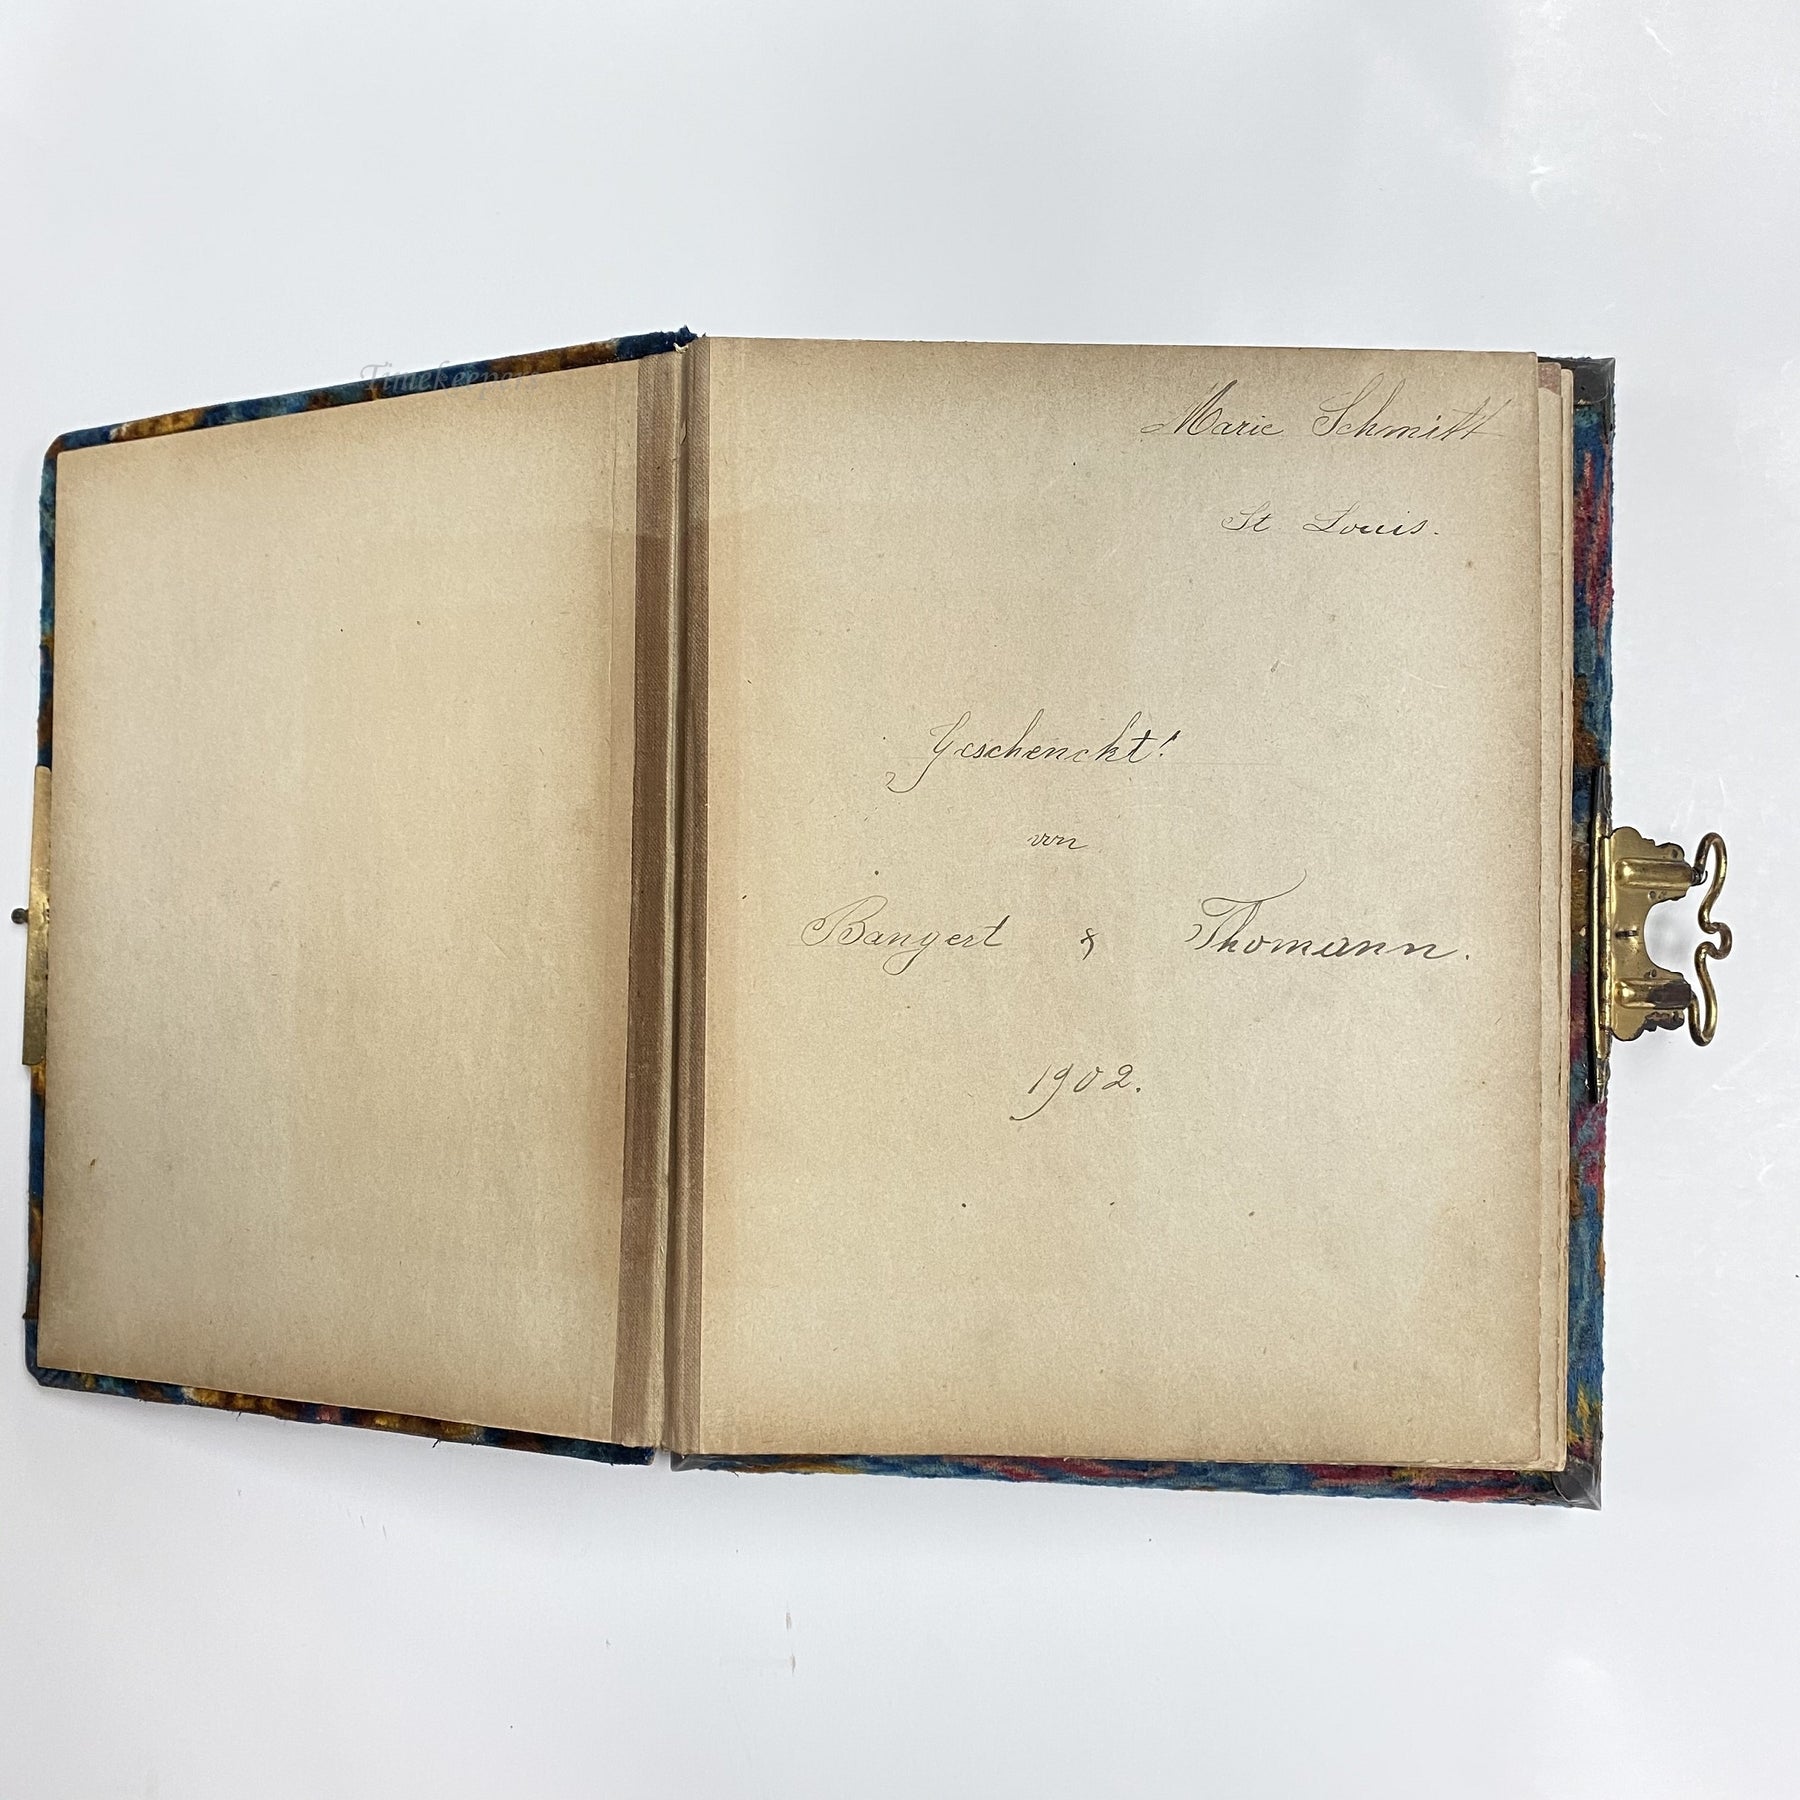 Timekeepers
Marie Schmitt
St Louis.
Geschenckt!
von
Bangert & Thomann.
1902.